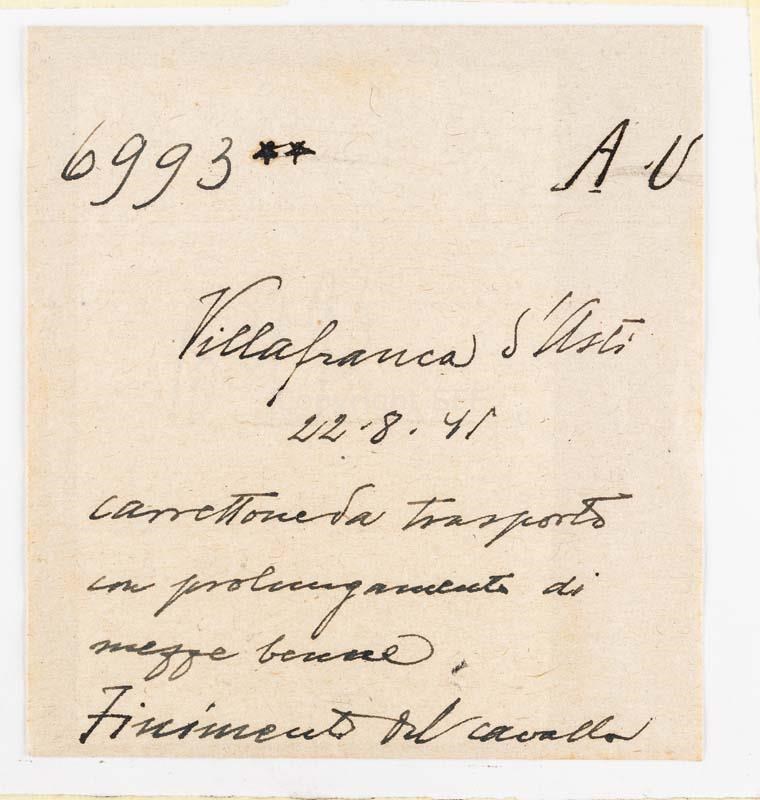 6993** A.V
Villafranca d'Asti
22.8.41
carrettone da trasporto
con prolungamento di
mezze benne.
Finimento del cavallo